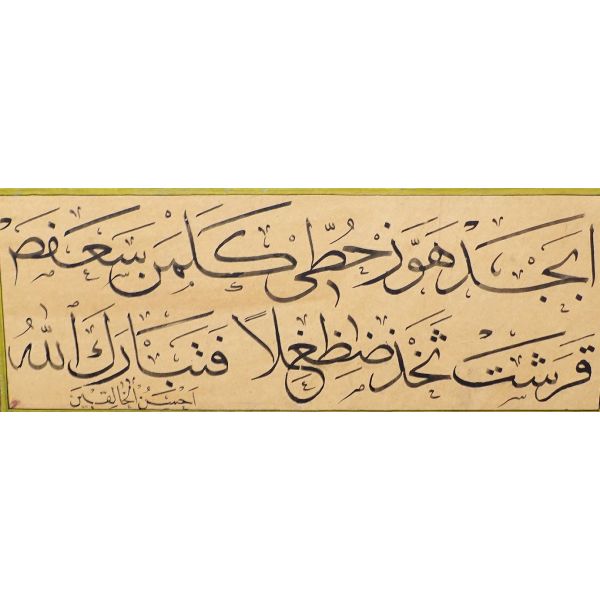 ابجد هوز حطي كلمن سعفص
قرشت ثخذ ضظغلا فتبارك الله
احسن الخالقين